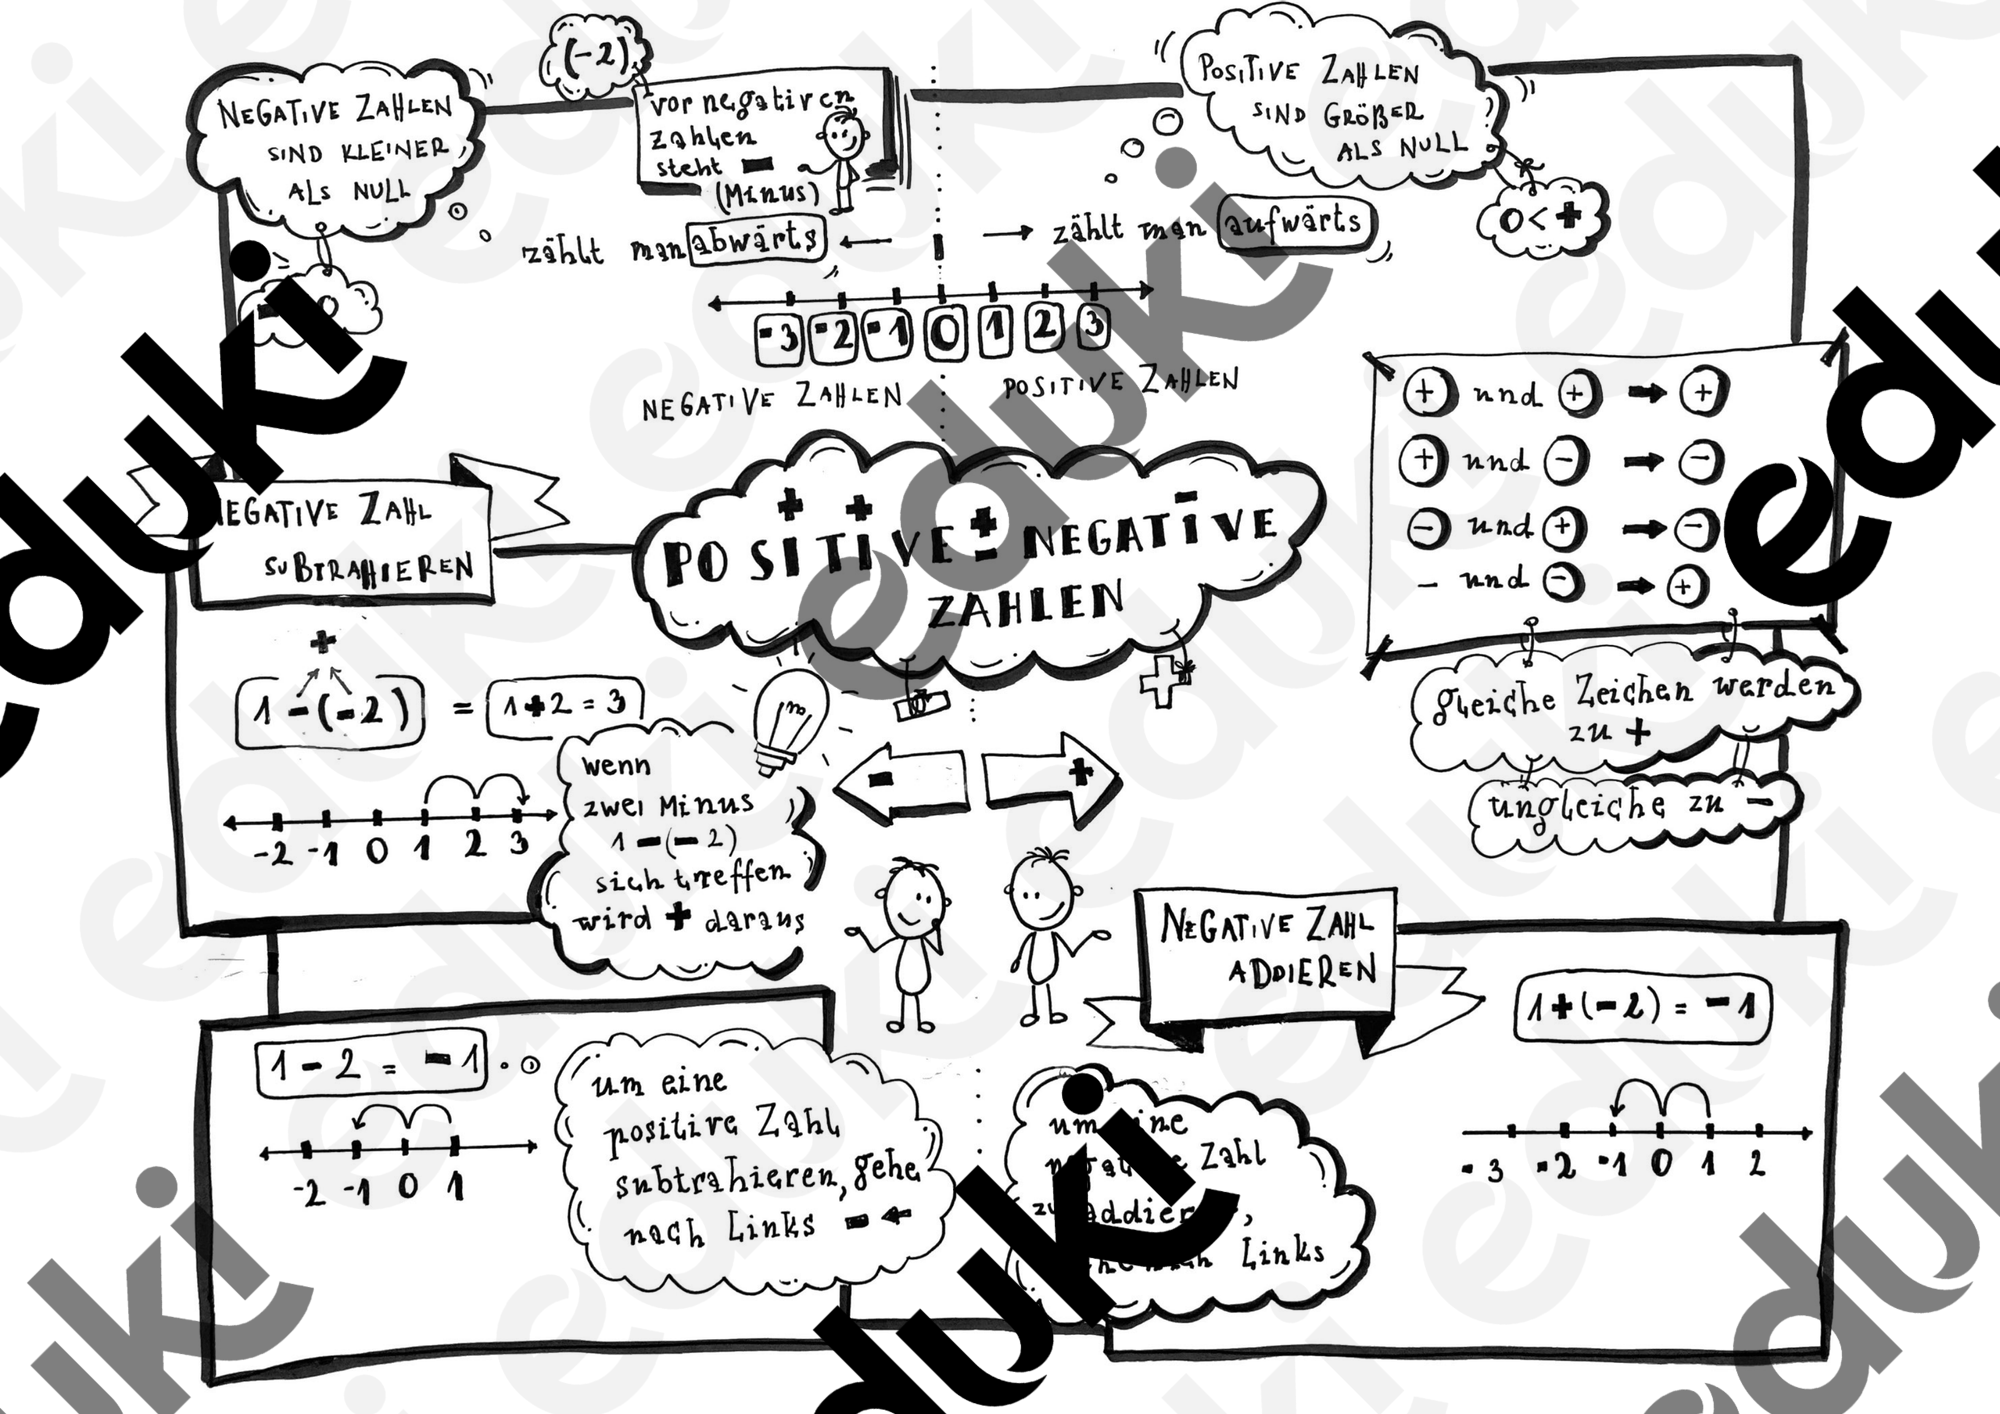 (-2)
NEGATIVE ZAHLEN
SIND KLEINER
ALS NULL
vor negativen
zahlen
steht -
(Minus)
POSITIVE ZAHLEN
SIND GRÖßER
ALS NULL
0 < +
zählt man abwärts ←
→ zählt man aufwärts
-3 -2 -1 0 1 2 3
NEGATIVE ZAHLEN
POSITIVE ZAHLEN
+ und + → +
+ und - → -
- und + → -
- und - → +
gleiche Zeichen werden
zu +
ungleiche zu -
POSITIVE ± NEGATIVE
ZAHLEN
- +
NEGATIVE ZAHL
SUBTRAHIEREN
+
1 - (-2) = 1+2 = 3
-2 -1 0 1 2 3
wenn
zwei Minus
1 - (-2)
sich treffen
wird + daraus
1 - 2 = -1
-2 -1 0 1
um eine
positive Zahl
subtrahieren, gehe
nach Links - ←
NEGATIVE ZAHL
ADDIEREN
1+(-2) = -1
-3 -2 -1 0 1 2
um
Zahl
Links
eduki
eduki
eduki
eduki
eduki